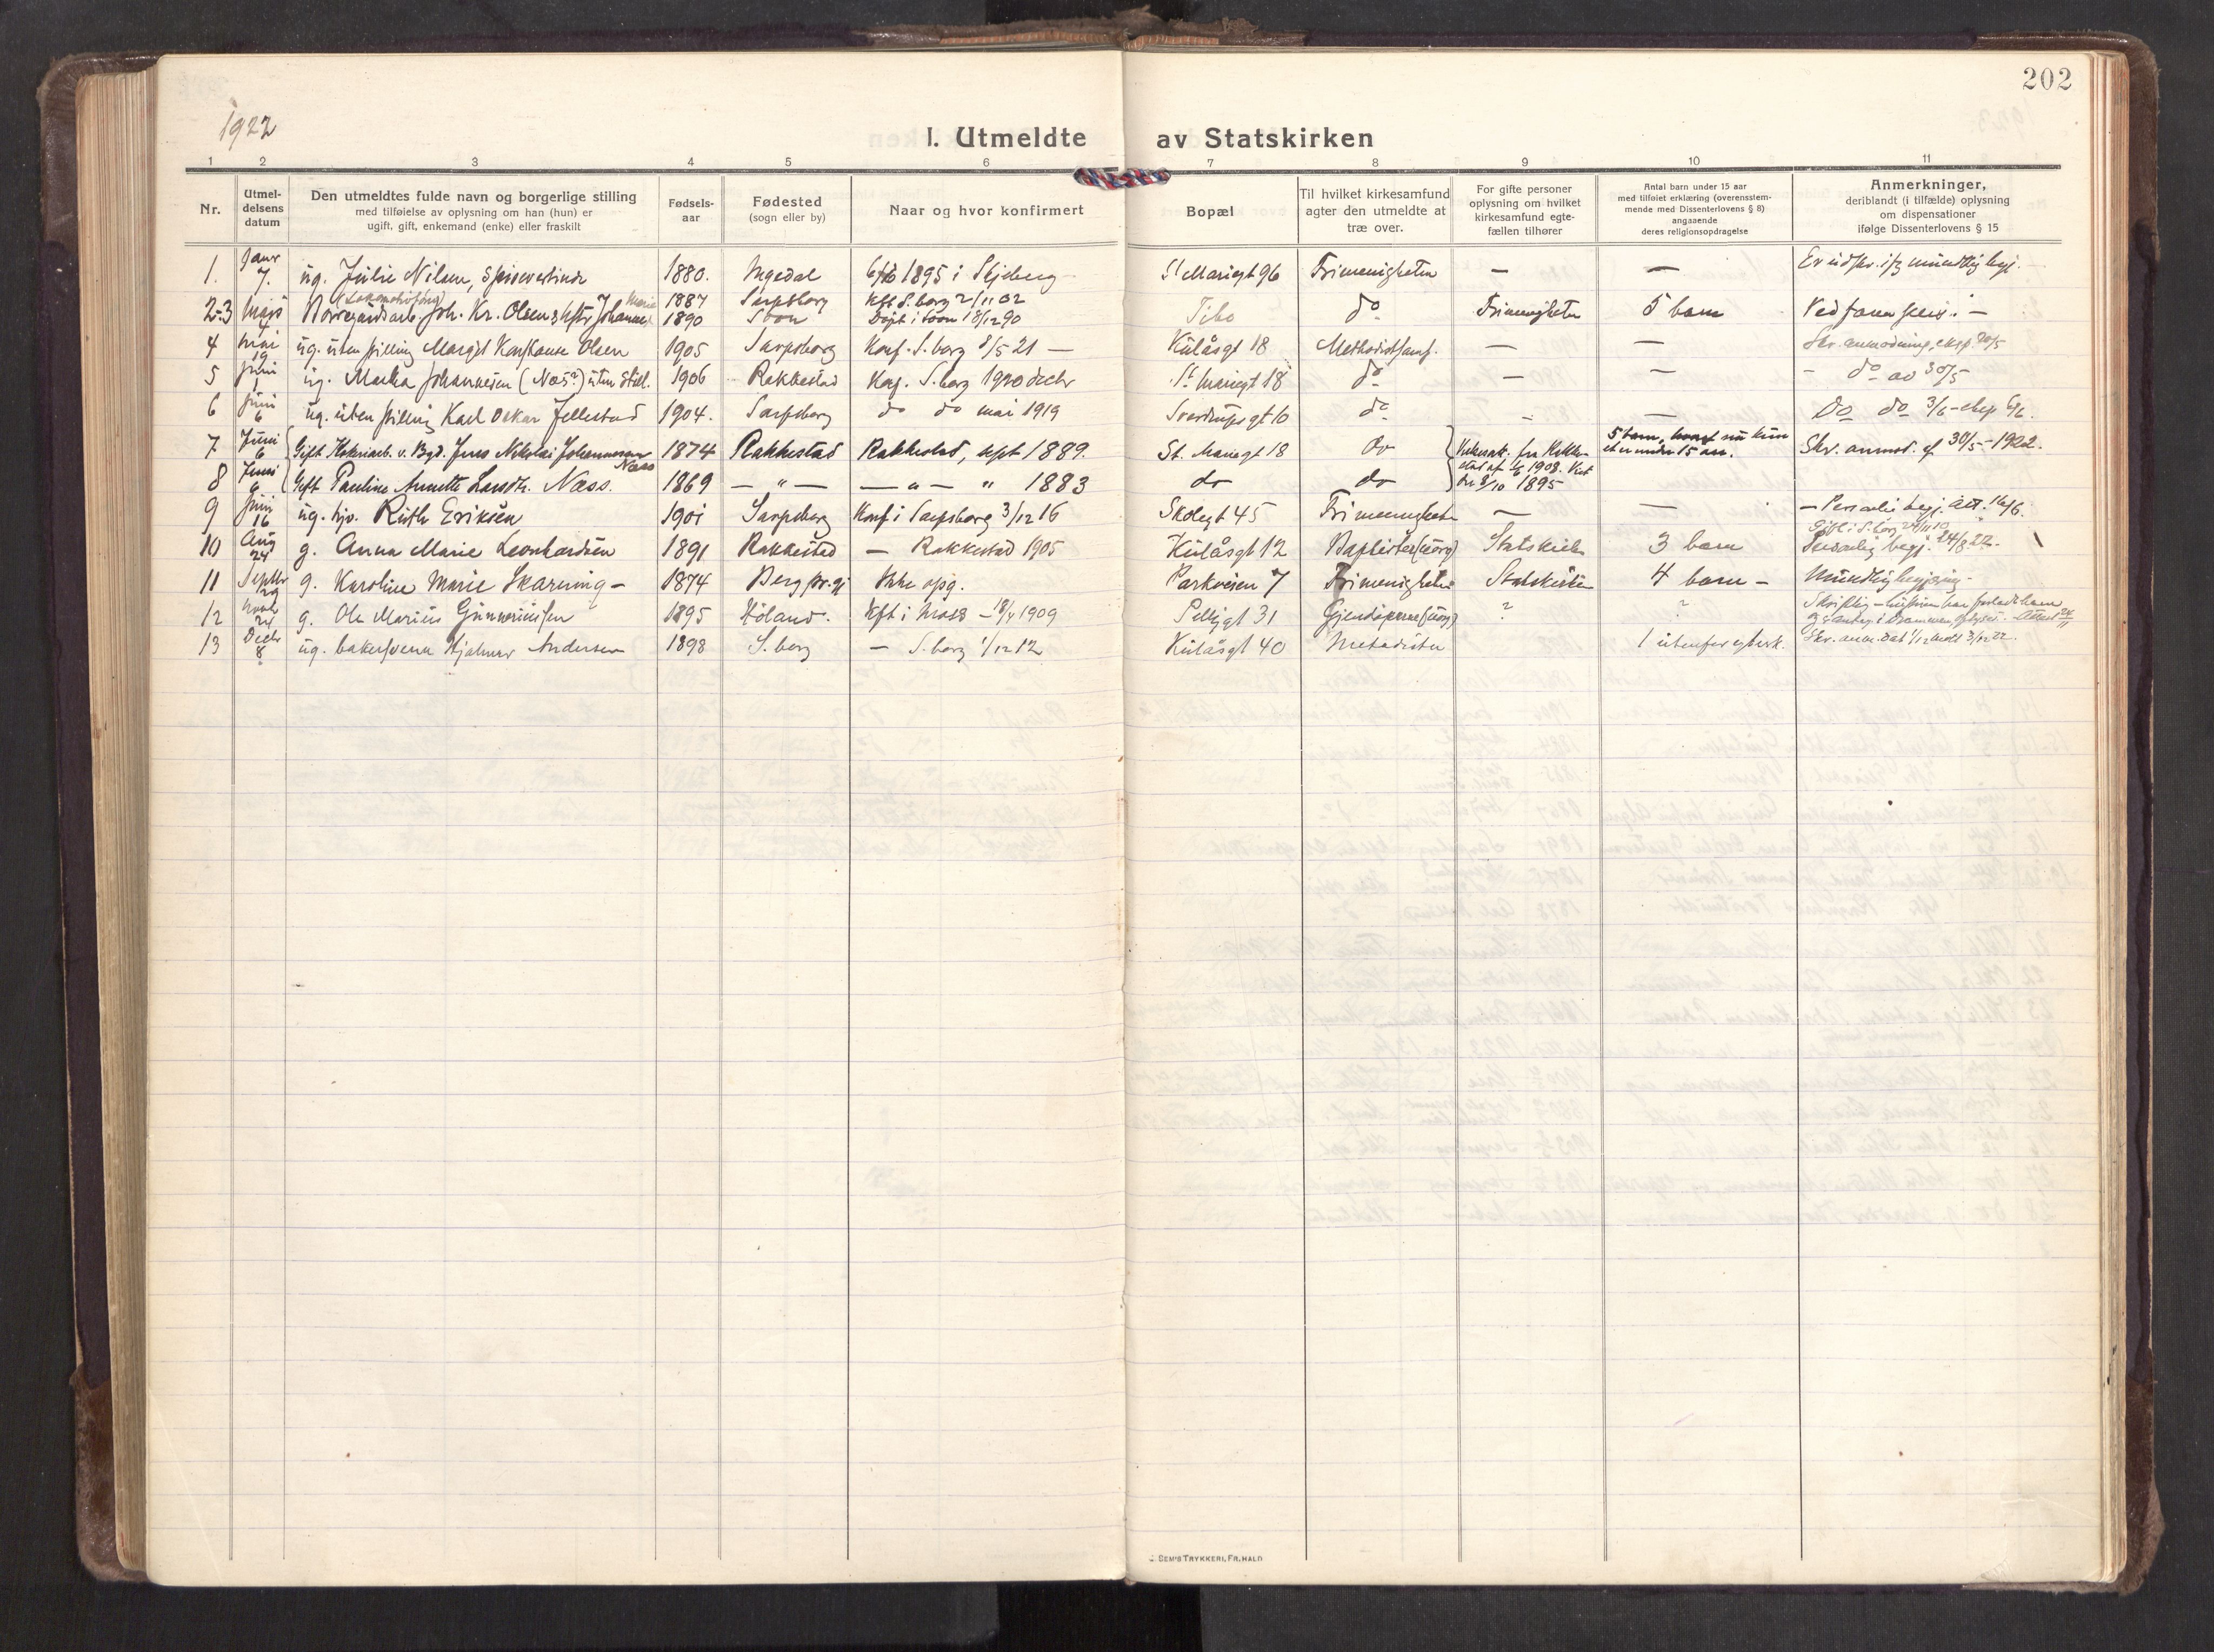 202
1922
I. Utmeldte av Statskirken
1 2 3 4 5 6 7 8 9 10 11
Nr.
Utmel-
delsens
datum
Den utmeldtes fulde navn og borgerlige stilling
med tilføielse av oplysning om han (hun) er
ugift, gift, enkemand (enke) eller fraskilt
Fødsels-
aar
Fødested
(sogn eller by)
Naar og hvor konfirmert
Bopæl
Til hvilket kirkesamfund
agter den utmeldte at
træ over.
For gifte personer
oplysning om hvilket
kirkesamfund egte-
fællen tilhører
Antal barn under 15 aar
med tilføiet erklæring (overensstem-
mende med Dissenterlovens § 8)
angaaende
deres religionsopdragelse
Anmerkninger,
deriblandt (i tilfælde) oplysning
om dispensationer
ifølge Dissenterlovens § 15
1. Janr 7. ug. Julie Nilsen, 1880. Ingedal 1895 i Skjeberg St Mariegt 96 Frimenigheten — — mundtlig begj.
2-3 Joh. Kr. Olsen & Johanne Marie 1887 Sarpsborg Kft S.borg 2/11 02 do Frimenigheten 5 barn
1890 Døpt i 18/12 90
4 mai 19 ug. uten stilling Margit Konstanse Olsen 1905 Sarpsborg Konf. S.borg 8/5 21 — Kulåsgt 18 Methodistsamf. — — Skr. anmodning, 20/5
5 Juni 1 ug. Johannesen (Næs?) uten still. 1906 Rakkestad Konf. S.borg 1920 decbr St Mariegt 18 do — — – do av 30/5
6 Juni 6 ug. uten stilling Karl Oskar Jellestad 1904. Sarpsborg do do mai 1919 Sverdrupsgt 10 do — — Do do 3/6
7 Juni 6 Gift Jens Nikolai Johannessen Næss 1874 Rakkestad Rakkestad, sept 1889. St. Mariegt 18 do 5 barn, hvoraf nu kun
et er under 15 aar. Skr. anmod. af 30/5 – 1922.
8 Juni 6 Gift Pauline Anette Larsdtr. Næss. 1869 — " — — " — " 1883 do do 1895
9 Juni 16 ug. Ruth Eriksen 1901 Sarpsborg Konf i Sarpsborg 3/12 16 Skolegt 45 Frimenigheten — — begj. 16/6.
10 Aug 24 g. Anna Marie Leonhardsen 1891 Rakkestad — Rakkestad 1905 Kulåsgt 12 Statskirken 3 barn Personlig begj. 24/8 22.
11 Septbr 29 g. Karoline Marie Skarning – 1874 Berg Ikke opg. Parkveien 7 Frimenigheten Statskirken 4 barn – Mundtlig begjæring –
12 Novbr 24 g. Ole Marius Gunneriussen 1895 Høland. Kft i Moss – 18/4 1909 Pellygt 31 ? ?
13 Decbr 8 ug. bakersvenn Hjalmar Andersen 1898 S.borg — S.borg 1/12 12 Kulåsgt 40 Metodisten 1 utenfor egtesk. Skr. anm. dat 1/12 3/12 22.
J. SEM'S TRYKKERI, FR.HALD